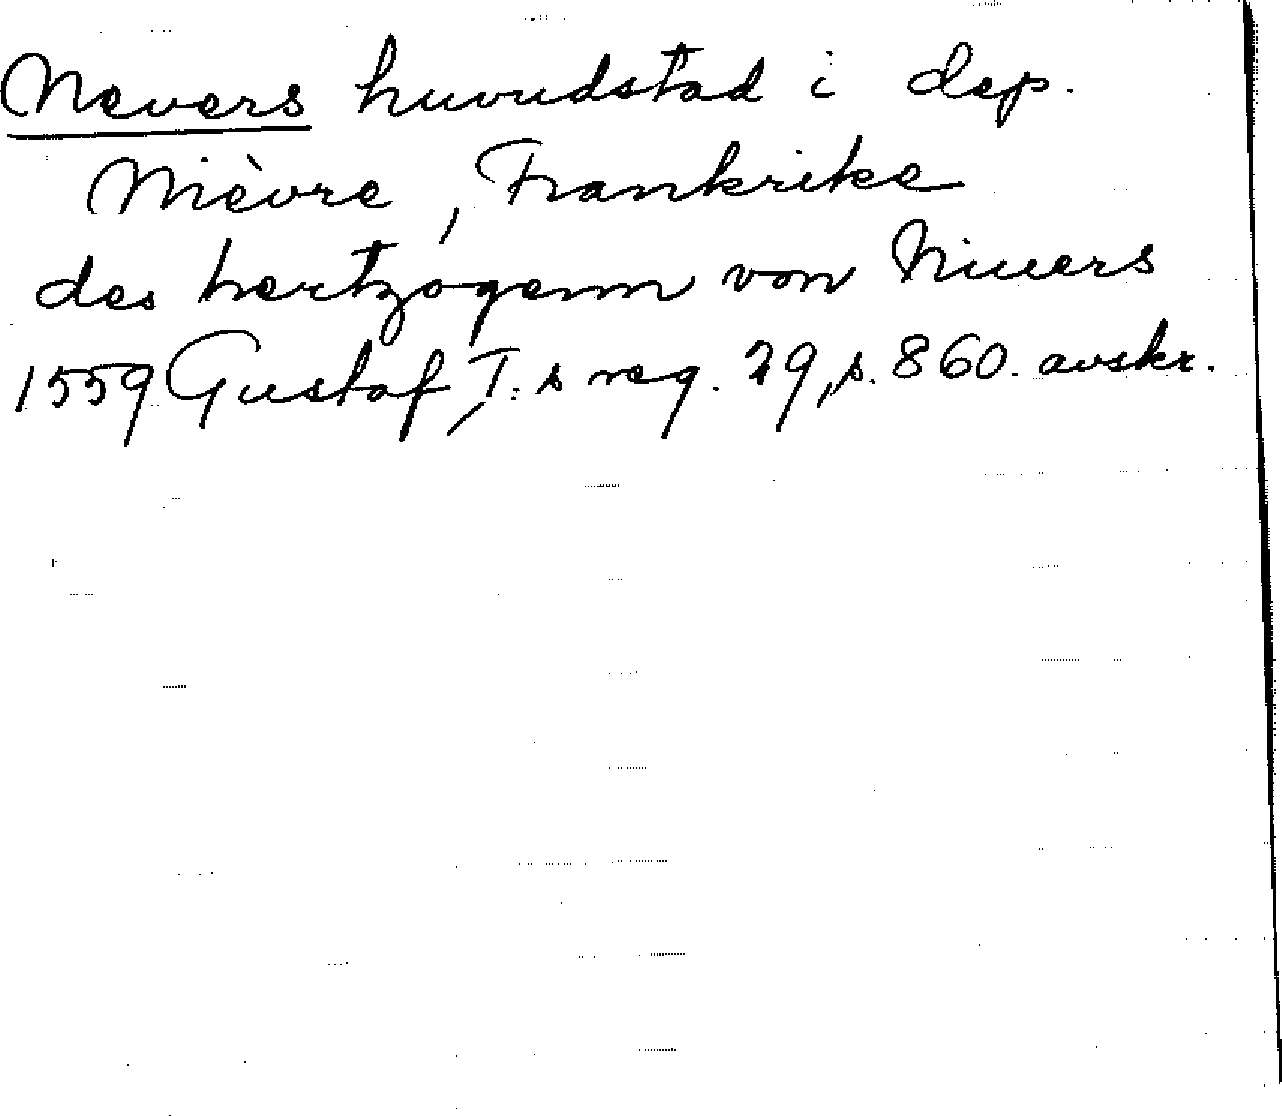 Nevers huvudstad i dep.
Nièvre, Frankrike
des hertzogenn von Niuers
1559 Gustaf I:s reg. 29, s. 860. avskr.